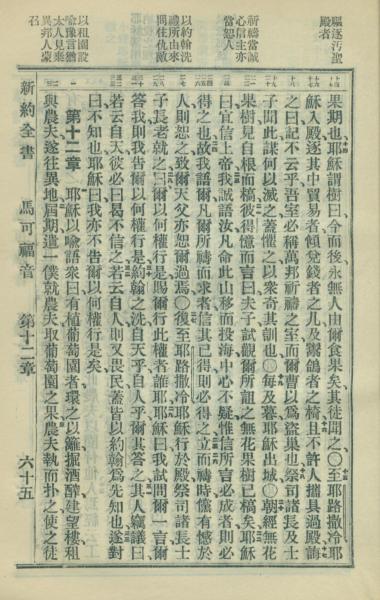 驅逐汚聖
殿者
祈禱當誠
心信主亦
當恕人
以約翰洗
禮所由來
問住仇敵
以租園設
喻豫言猶
太人見棄
異邦人蒙
召
果期也耶穌謂樹曰今而後永無人由爾食果矣其徒聞之〇至耶路撒冷耶
穌入殿逐其中貿易者傾兌錢者之几及鬻鴿者之椅且不許人攜具過殿誨
之曰記不云乎吾室必稱萬邦祈禱之室而爾曹以爲盜巢也祭司諸長及士
子聞此謀何以滅之蓋懼之以衆奇其訓也〇每及暮耶穌出城〇朝經無花
果樹見自根而槁彼得憶而言曰夫子試觀爾所詛之無花果樹已槁矣耶穌
曰宜信上帝我誠語汝凡命此山移而投海中心不疑惟信所言必成者則必
得之也故我語爾凡爾所禱而求者信其已得則必得之立而禱時儻有憾於
人則恕之致爾天父亦恕爾過焉〇後至耶路撒冷耶穌行於殿祭司諸長士
子長老就之曰爾以何權行是賜爾行此權者誰耶耶穌曰我試問爾一言爾
答我則我告爾以何權行是約翰之洗自天乎自人乎爾其答之其人竊議曰
若云自天彼必曰曷不信之若云自人則又畏民蓋皆以約翰爲先知也遂對
曰不知也耶穌曰我亦不告爾以何權行是矣
第十二章 耶穌以喻語衆曰有植葡萄園者環之以籬掘酒醡建望樓租
與農夫遂往異地屆期遣一僕就農夫取葡萄園之果農夫執而扑之使之徒
新約全書 馬可福音 第十二章 六十五